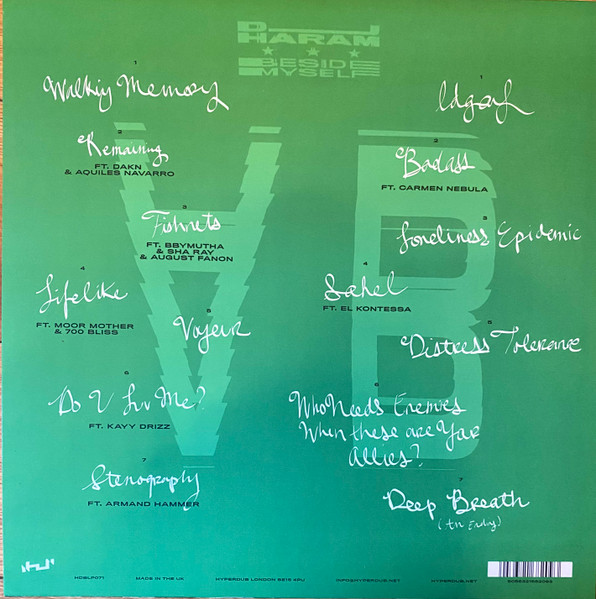 DJ
HARAM
★ ★ ★
BESIDE
MYSELF
A
1
Walking Memory
2
Remaining
FT. DAKN
& AQUILES NAVARRO
3
Fishnets
FT. BBYMUTHA
& SHA RAY
& AUGUST FANON
4
Lifelike
FT. MOOR MOTHER
& 700 BLISS
5
Voyeur
6
Do U Luv Me?
FT. KAYY DRIZZ
7
Stenography
FT. ARMAND HAMMER
B
1
Idgaf
2
Badass
FT. CARMEN NEBULA
3
Loneliness Epidemic
4
Sahel
FT. EL KONTESSA
5
Distress Tolerance
6
Who Needs Enemies
When these are Your
Allies?
7
Deep Breath
(An Ending)
HDBLP071
MADE IN THE UK
HYPERDUB LONDON
INFO@HYPERDUB.NET
HYPERDUB.NET